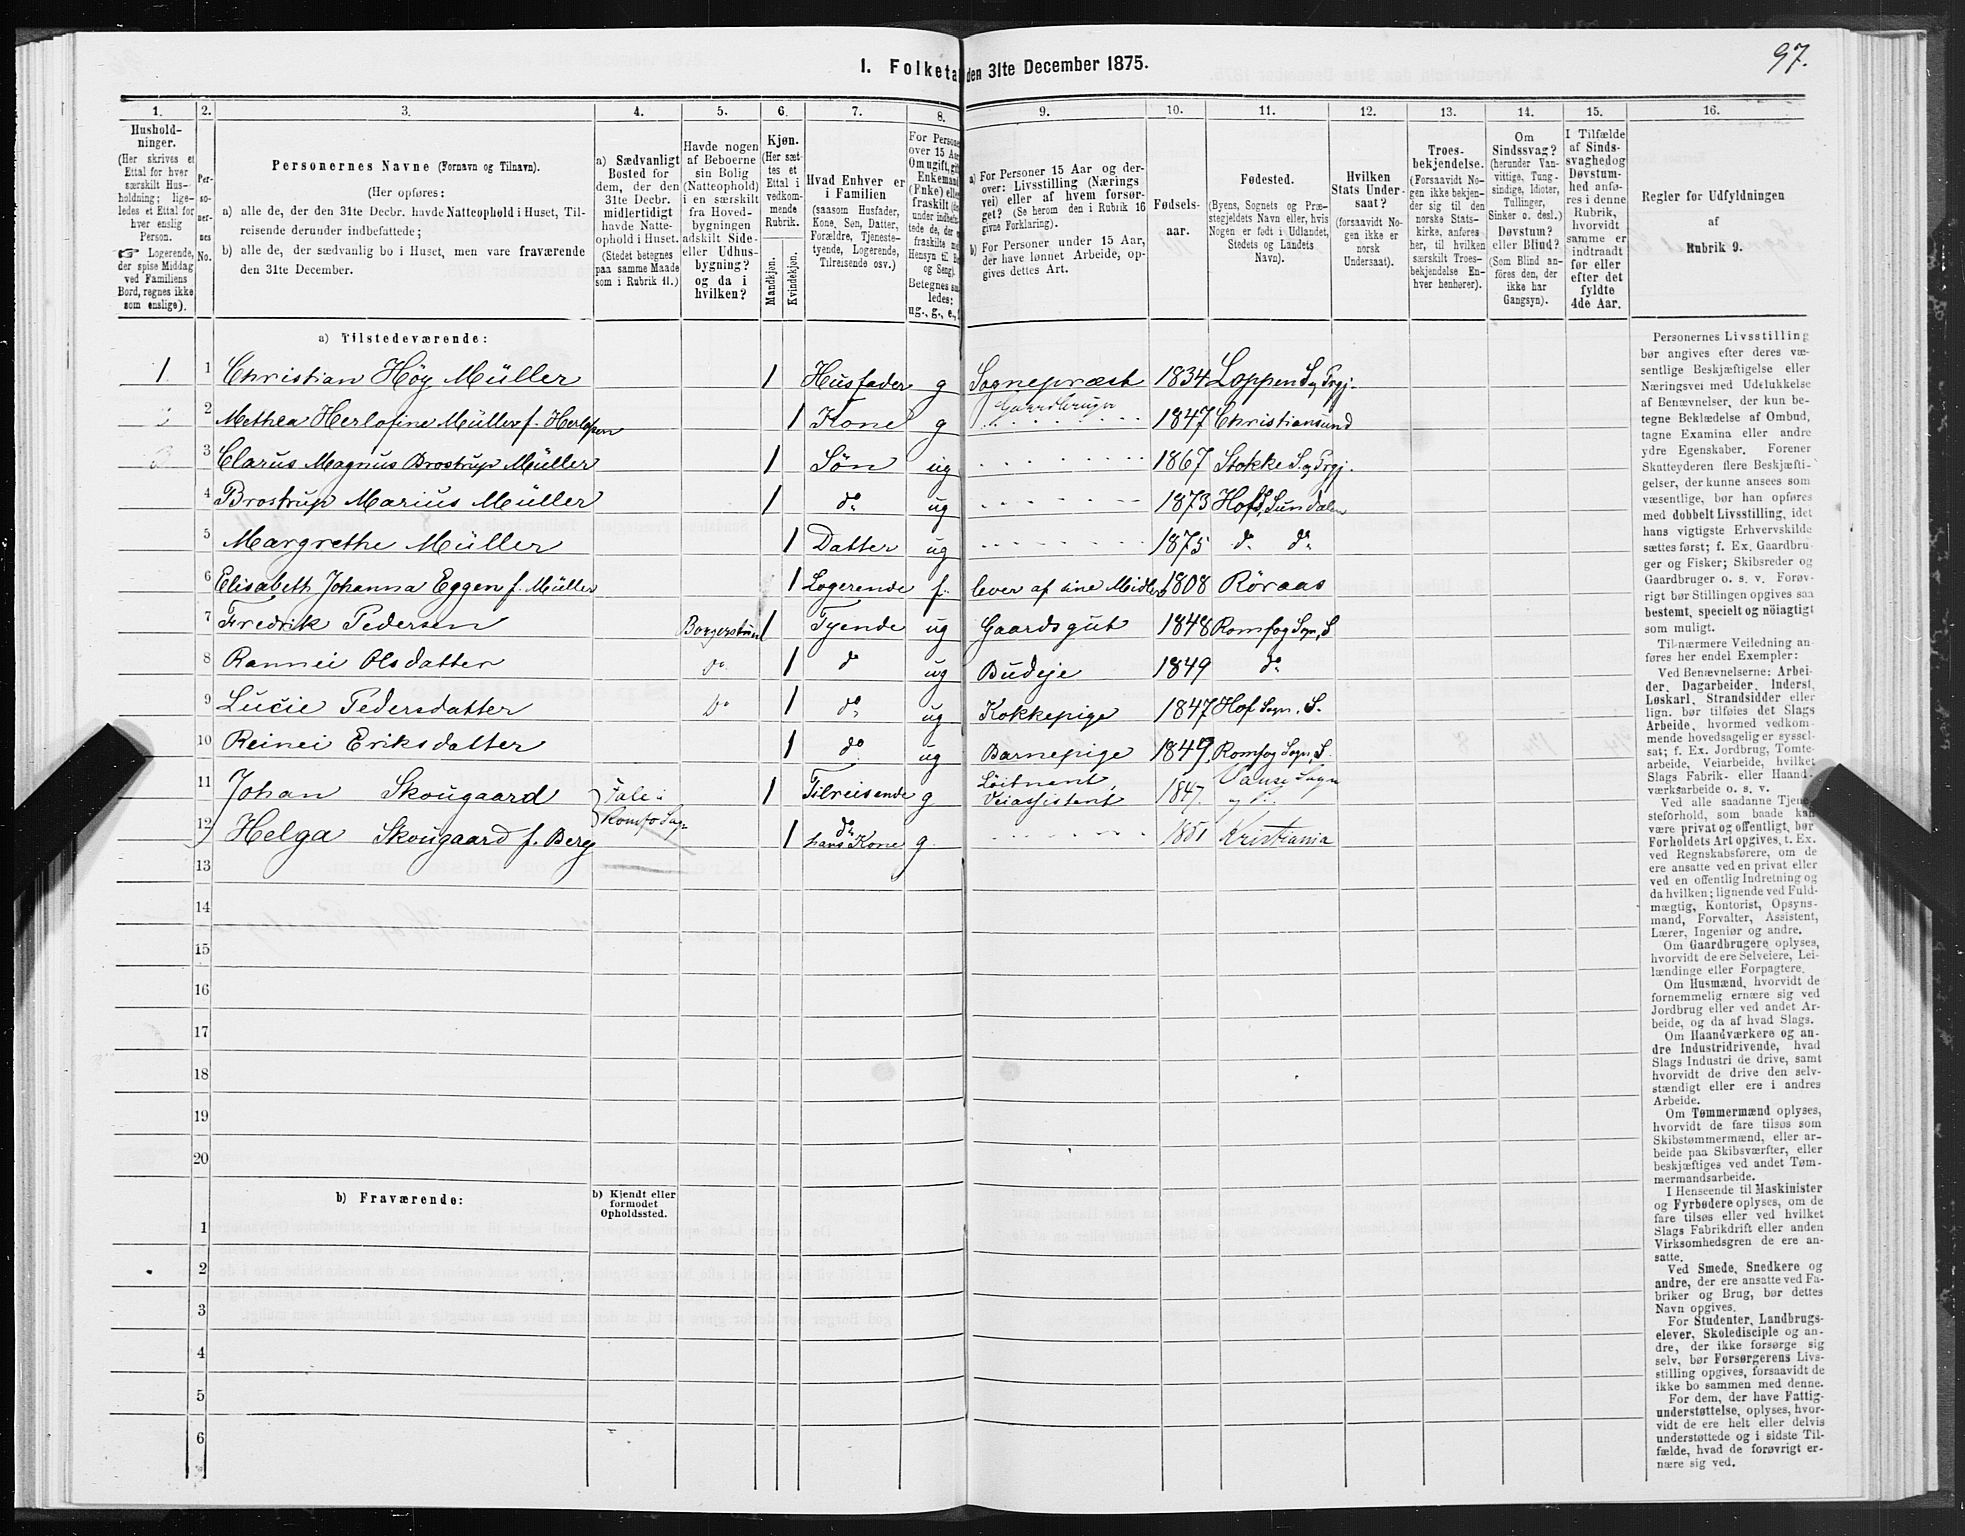 97.
1. Folketa den 31te December 1875.
1. 2. 3. 4. 5. 6. 7. 8. 9. 10. 11. 12. 13. 14. 15. 16.
Hushold-
ninger.
(Her skrives et
Ettal for hver
særskilt Hus-
holdning; lige-
ledes et Ettal for
hver enslig
Person.
☞ Logerende,
der spise Middag
ved Familiens
Bord, regnes ikke
som enslige).
Per-
so-
ner-
nes
No.
Personernes Navne (Fornavn og Tilnavn).
(Her opføres:
a) alle de, der den 31te Decbr. havde Natteophold i Huset, Til-
reisende derunder indbefattede;
b) alle de, der sædvanlig bo i Huset, men vare fraværende
den 31te December.
a) Sædvanligt
Bosted for
dem, der den
31te Decbr.
midlertidigt
havde Natte-
ophold i Huset.
(Stedet betegnes
paa samme Maade
som i Rubrik 11.)
Havde nogen
af Beboerne
sin Bolig
(Natteophold)
i en særskilt
fra Hoved-
bygningen
adskilt Side-
eller Udhus-
bygning?
og da i
hvilken?
Kjøn.
(Her sæt-
tes et
Ettal i
vedkom-
mende
Rubrik.
Mandkjøn.
Kvindekjøn.
Hvad Enhver er
i Familien
(saasom Husfader,
Kone, Søn, Datter,
Forældre, Tjeneste-
tyende, Logerende,
Tilreisende osv.)
For Persone
over 15 Aa
Om ugift, gif
Enkemand
(Fnke) elle
fraskilt (de
under indbefa
tede de, der e
fraskilte m
Hensyn til B
og Seng).
Betegnes sa
ledes:
ug., g., e., f
a) For Personer 15 Aar og der-
over: Livsstilling (Nærings
vei) eller af hvem forsør-
get? (Se herom den i Rubrik 16
givne Forklaring).
b) For Personer under 15 Aar,
der have lønnet Arbeide, op-
gives dettes Art.
Fødsels-
aar.
Fødested.
(Byens, Sognets og Præ-
stegjeldets Navn eller, hvis
Nogen er født i Udlandet,
Stedets og Landets
Navn).
Hvilken
Stats Under-
saat?
(forsaavidt No-
gen ikke er
norsk
Undersaat).
Troes-
bekjendelse.
(Forsaavidt No-
gen ikke bekjen-
der sig til den
norske Stats-
kirke, anføres
her, til hvilken
særskilt Troes-
bekjendelse En-
hver henhører).
Om
Sindssvag?
(herunder Van-
vittige, Tung-
sindige, Idioter,
Tullinger,
Sinker o. desl.)
Døvstum?
eller Blind?
(Som Blind an-
føres den, der
ikke har
Gangsyn).
I Tilfælde
af Sinds-
svaghed og
Døvstum-
hed anfø-
res i denne
Rubrik,
hvorvidt
samme er
indtraadt
før eller
efter det
fyldte
4de Aar.
Regler for Udfyldningen
af
Rubrik 9.
a) Tilstedeværende:
1 1 Christian Höy Müller 1 Husfader g Sognepræst 1834 Loppen S. og Prgj.
Gaardbruger
2 2 Methea Herlofine Müller f. Herlofsen 1 Kone g 1847 Christiansund
3 3 Clarus Magnus Brostrup Müller 1 Søn ug 1867 Stokke S. og Prgj.
4 Brostrup Marius Müller 1 do ug 1873 Hof S, Sundalen
5 Margrethe Müller 1 Datter ug 1875 do do
6 Elisabeth Johanna Eggen f. Müller 1 Logerende f. lever af sine Midler 1808 Röraas
7 Fredrik Pedersen Borgerstuen 1 Tyende ug Gaardsgut 1848 Romfog Sogn, S
8 Rannei Olsdatter do 1 do ug Budeje 1849 do
9 Lucie Pedersdatter do 1 do ug Kokkepige 1847 Hof Sogn. S.
10 Reinei Eriksdatter 1 do ug Barnepige 1849 Romfog Sogn, S.
11 Johan Skougaard Fale i 1 Tilreisende g Löitnent, Veiassistent 1847. Vanse Sogn
12 Helga Skougaard f. Berg Romfo Sogn 1 do hans Kone g. 1851 Kristiania
13
14
15
16
17
18
19
20
b) Fraværende:
b) Kjendt eller
formodet
Opholdssted.
1
2
3
4
5
6
Personernes Livsstilling
bør angives efter deres væ-
sentlige Beskjæftigelse eller
Næringsvei med Udelukkelse
af Benævnelser, der kun be-
tegne Beklædelse af Ombud,
tagne Examina eller andre
ydre Egenskaber. Forener
Skatteyderen flere Beskjæfti-
gelser, der kunne ansees som
væsentlige, bør han opføres
med dobbelt Livsstilling, idet
hans vigtigste Erhvervskilde
sættes først; f. Ex. Gaardbru-
ger og Fisker; Skibsreder og
Gaardbruger o. s. v. Forøv-
rigt bør Stillingen opgives saa
bestemt, specielt og nöiagtigt
som muligt.
Til nærmere Veiledning an-
føres her endel Exempler:
Ved Benævnelserne: Arbei-
der, Dagarbeider, Inderst,
Løskarl, Strandsidder eller
lign. bør tilføies det Slags
Arbeide, hvormed vedkom-
mende hovedsagelig er syssel-
sat; f. Ex. Jordbrug, Tomte-
arbeide, Veiarbeide, hvilket
Slags Fabrik- eller Haand-
værksarbeide o. s. v.
Ved alle saadanne Tjene-
steforhold, som baade kan
være privat og offentligt, bør
Forholdets Art opgives, t. Ex.
ved Regnskabsførere, om de
ere ansatte ved en privat eller
ved en offentlig Indretning og
da hvilken; lignende ved Fuld-
mægtig, Kontorist, Opsyns-
mand, Forvalter, Assistent,
Lærer, Ingeniør og andre.
Om Gaardbrugere oplyses,
hvorvidt de ere Selveiere, Lei-
lændinge eller Forpagtere.
Om Husmænd, hvorvidt de
fornemmelig ernære sig ved
Jordbrug eller ved andet Ar-
beide, og da af hvad Slags.
Om Haandværkere og an-
dre Industridrivende, hvad
Slags Industri de drive, samt
hvorvidt de drive den selv-
stændigt eller ere i andres
Arbeide.
Om Tømmermænd oplyses,
hvorvidt de fare tilsøs som
Skibstømmermænd, eller ar-
beide paa Skibsværfter, eller
beskjæftiges ved andet Tøm-
mermandsarbeide.
I Henseende til Maskinister
og Fyrbødere oplyses, om de
fare tilsøs eller ved hvilket
Slags Fabrikdrift eller anden
Virksomhedsgren de ere an-
satte.
Ved Smede, Snedkere og
andre, der ere ansatte ved Fa-
briker og Brug, bør dettes
Navn opgives.
For Studenter, Landbrugs-
elever, Skoledisciple og an-
dre, der ikke forsørge sig
selv, bør Forsørgerens Livs-
stilling opgives, forsaavidt de
ikke bo sammen med denne.
For dem, der have Fattig-
understøttelse, oplyses, hvor-
vidt de ere helt eller delvis
understøttede og i sidste Til-
fælde, hvad de forøvrigt er-
nære sig ved.